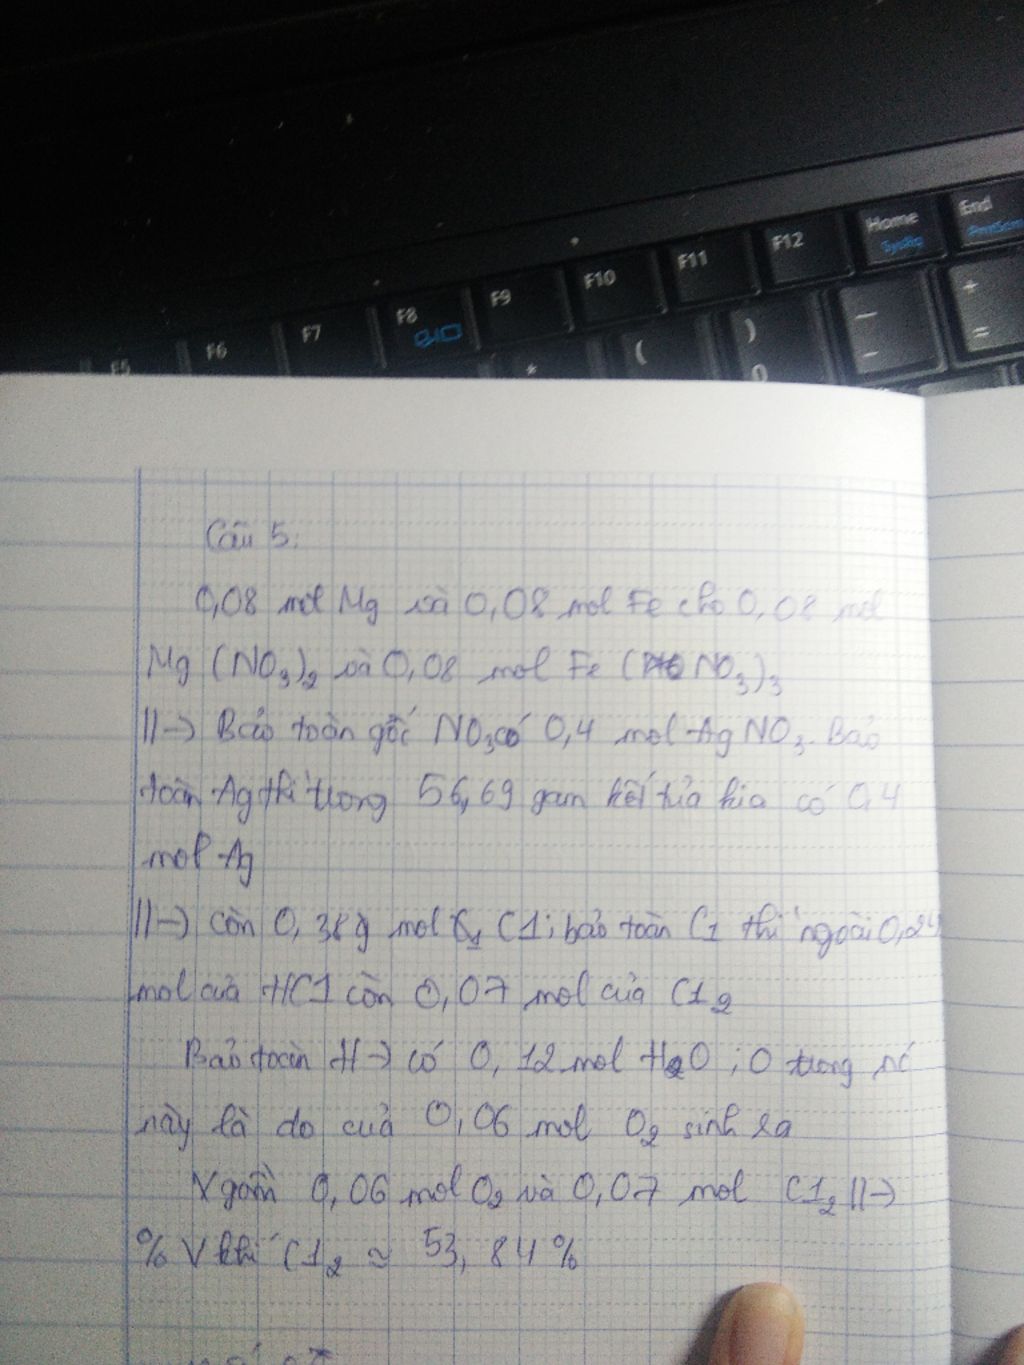 F5 F6 F7 F8 F9 F10 F11 F12 Home End
SysRq PrntScrn
* ( ) 0 — - + =
Câu 5:
0,08 mol Mg và 0,08 mol Fe cho 0,08 mol
Mg (NO3)2 và 0,08 mol Fe (NO3)3
||-) Bảo toàn gốc NO3 có 0,4 mol AgNO3. Bảo
toàn Ag thì trong 56,69 gam kết tủa kia có 0,4
mol Ag
||-) còn 0,38 mol C1; bảo toàn C1 thì ngoài 0,24
mol của HC1 còn 0,07 mol của C12
Bảo toàn H-) có 0,12 mol H2O ; O trong nó
này là do của 0,06 mol O2 sinh ra
V gồm 0,06 mol O2 và 0,07 mol C12 ||-)
% V khí C12 ≈ 53,84%